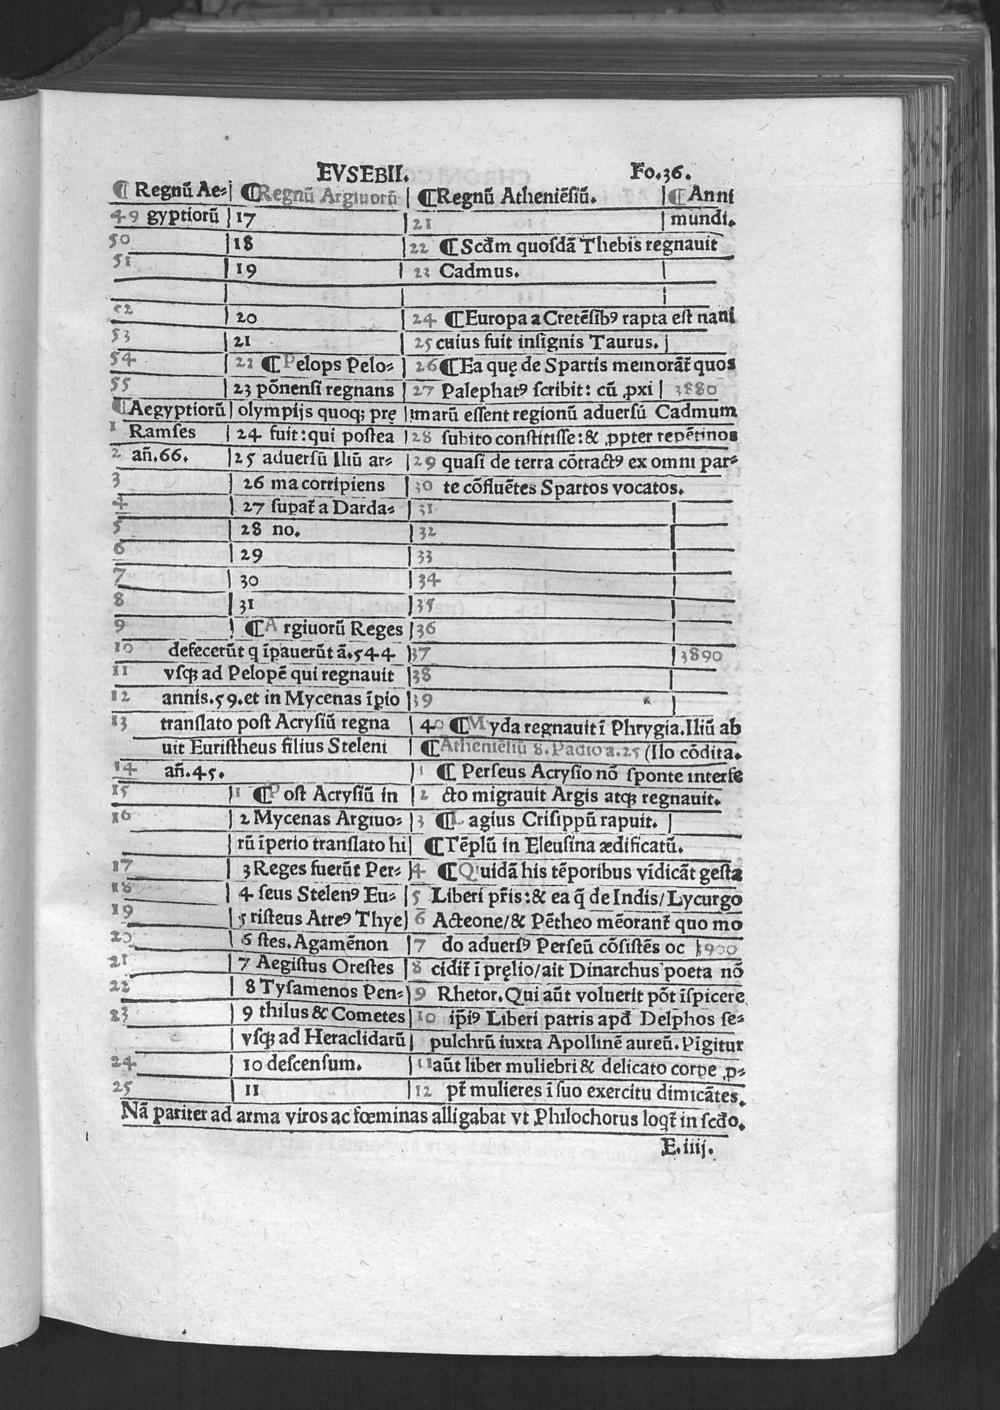 EVSEBII. Fo.36.
¶ Regnũ Ae= ¶Regnũ Argiuorũ ¶Regnũ Atheniẽſiũ. ¶Anni
49 gyptiorũ 17 21 mundi.
50 18 22 ¶Scďm quoſdã Thebis regnauit
51 19 23 Cadmus.
52 20 24 ¶Europa a Cretẽſibꝰ rapta eſt nani
53 21 25 cuius fuit inſignis Taurus.
54 22 ¶Pelops Pelo= 26 ¶Ea quę de Spartis memorãt̃ quos
55 23 põnenſi regnans 27 Palephatꝰ ſcribit: cũ ꝓxi 3880
¶Aegyptiorũ olympijs quoqꝫ prę marũ eſſent regionũ aduerſũ Cadmum
1 Ramſes 24 fuit:qui poſtea 28 ſubito conſtitiſſe:& ꝓpter repẽtinos
2 añ.66. 25 aduerſũ Iliũ ar= 29 quaſi de terra cõtractꝰ ex omni par=
3 26 ma corripiens 30 te cõfluẽtes Spartos vocatos.
4 27 ſupat̃ a Darda= 31
5 28 no. 32
6 29 33
7 30 34
8 31 35
9 ¶A rgiuorũ Reges 36
10 defecerũt q ĩpauerũt ã.544 37 3890
11 vſqꝫ ad Pelopẽ qui regnauit 38
12 annis.59.et in Mycenas ĩpio 39
13 tranſlato poſt Acryſiũ regna 40 ¶Myda regnauit ĩ Phrygia.Iliũ ab
uit Euriſtheus filius Steleni ¶Atheniẽſiũ 8.Pãdio a.25 (Ilo cõdita.
14 añ.45. 1 ¶ Perſeus Acryſio nõ ſponte interfe
15 1 ¶P oſt Acryſiũ in 2 cto migrauit Argis atqꝫ regnauit.
16 2 Mycenas Argiuo= 3 ¶L agius Criſippũ rapuit.
rũ ĩperio tranſlato hi ¶Tẽplũ in Eleuſina ædificatũ.
17 3 Reges fuerũt Per= 4 ¶Quidã his tẽporibus vĩdicãt geſta
18 4 ſeus Stelenꝰ Eu= 5 Liberi pr̃is:& ea q̃ de Indis/Lycurgo
19 5 riſteus Atreꝰ Thye 6 Acteone/& Pẽtheo mẽorant̃ quo mo
20 6 ſtes.Agamẽnon 7 do aduerſꝰ Perſeũ cõſiſtẽs oc 3900
21 7 Aegiſtus Oreſtes 8 cidit̃ ĩ pręlio/ait Dinarchus poeta nõ
22 8 Tyſamenos Pen= 9 Rhetor.Qui aũt voluerit põt ĩſpicere
23 9 thilus & Cometes 10 ip̃iꝰ Liberi patris apď Delphos ſe=
vſqꝫ ad Heraclidarũ pulchrũ iuxta Apollinẽ aureũ.Pĩgitur
24 10 deſcenſum. 11 aũt liber muliebri & delicato corpe ꝓ=
25 11 12 pt̃ mulieres ĩ ſuo exercitu dimicãtes.
Nã pariter ad arma viros ac fœminas alligabat vt Philochorus loqt̃ in ſcďo.
E.iiij.